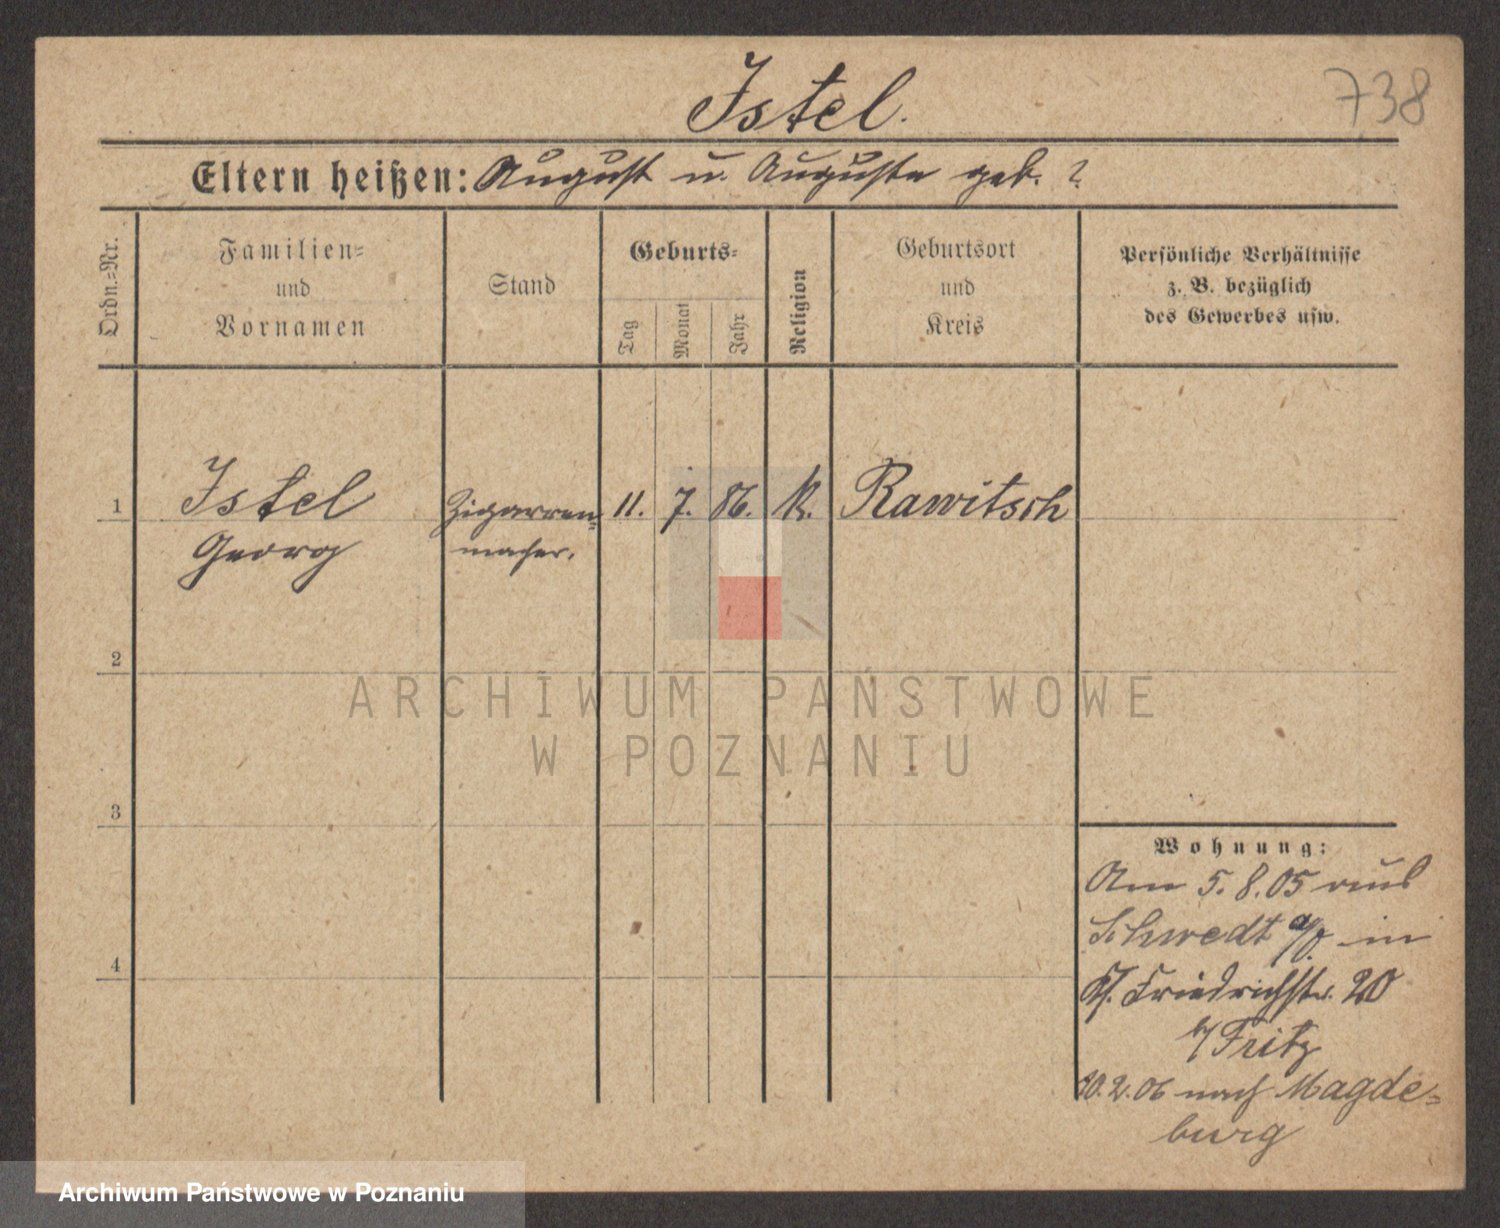 Istel.
738
Eltern heißen: August u. Auguste geb. ?
Ordn.-Nr.
Familien-
und
Vornamen
Stand
Geburts-
Tag
Monat
Jahr
Religion
Geburtsort
und
Kreis
Persönliche Verhältnisse
z. B. bezüglich
des Gewerbes usw.
1
Istel
Georg
Zigarren-
macher.
11.
7.
86.
K.
Rawitsch
2
3
4
Wohnung:
Am 5.8.05 aus
Schwedt a/O. in
Friedrichstr. 20
b/ Fritz
20.2.06 nach Magde-
burg
ARCHIWUM PAŃSTWOWE
W POZNANIU
Archiwum Państwowe w Poznaniu